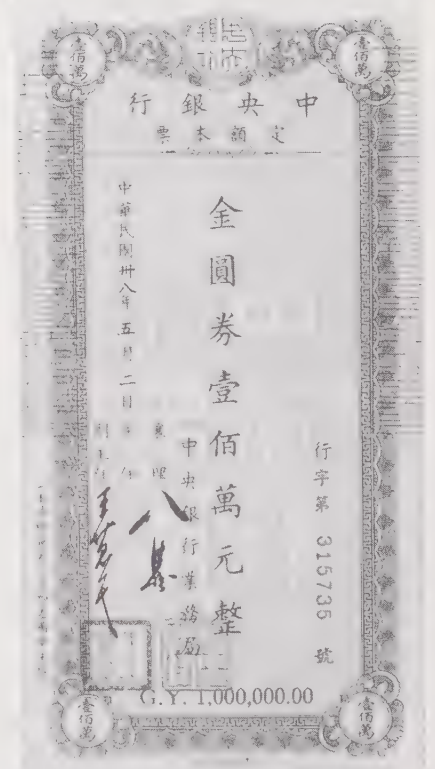 壹佰萬
壹佰萬
中央銀行
定額本票
行字第 315735 號
金圓券壹佰萬元整
中央銀行業務局
中華民國卅八年五月二日
G.Y. 1,000,000.00
壹佰萬
壹佰萬